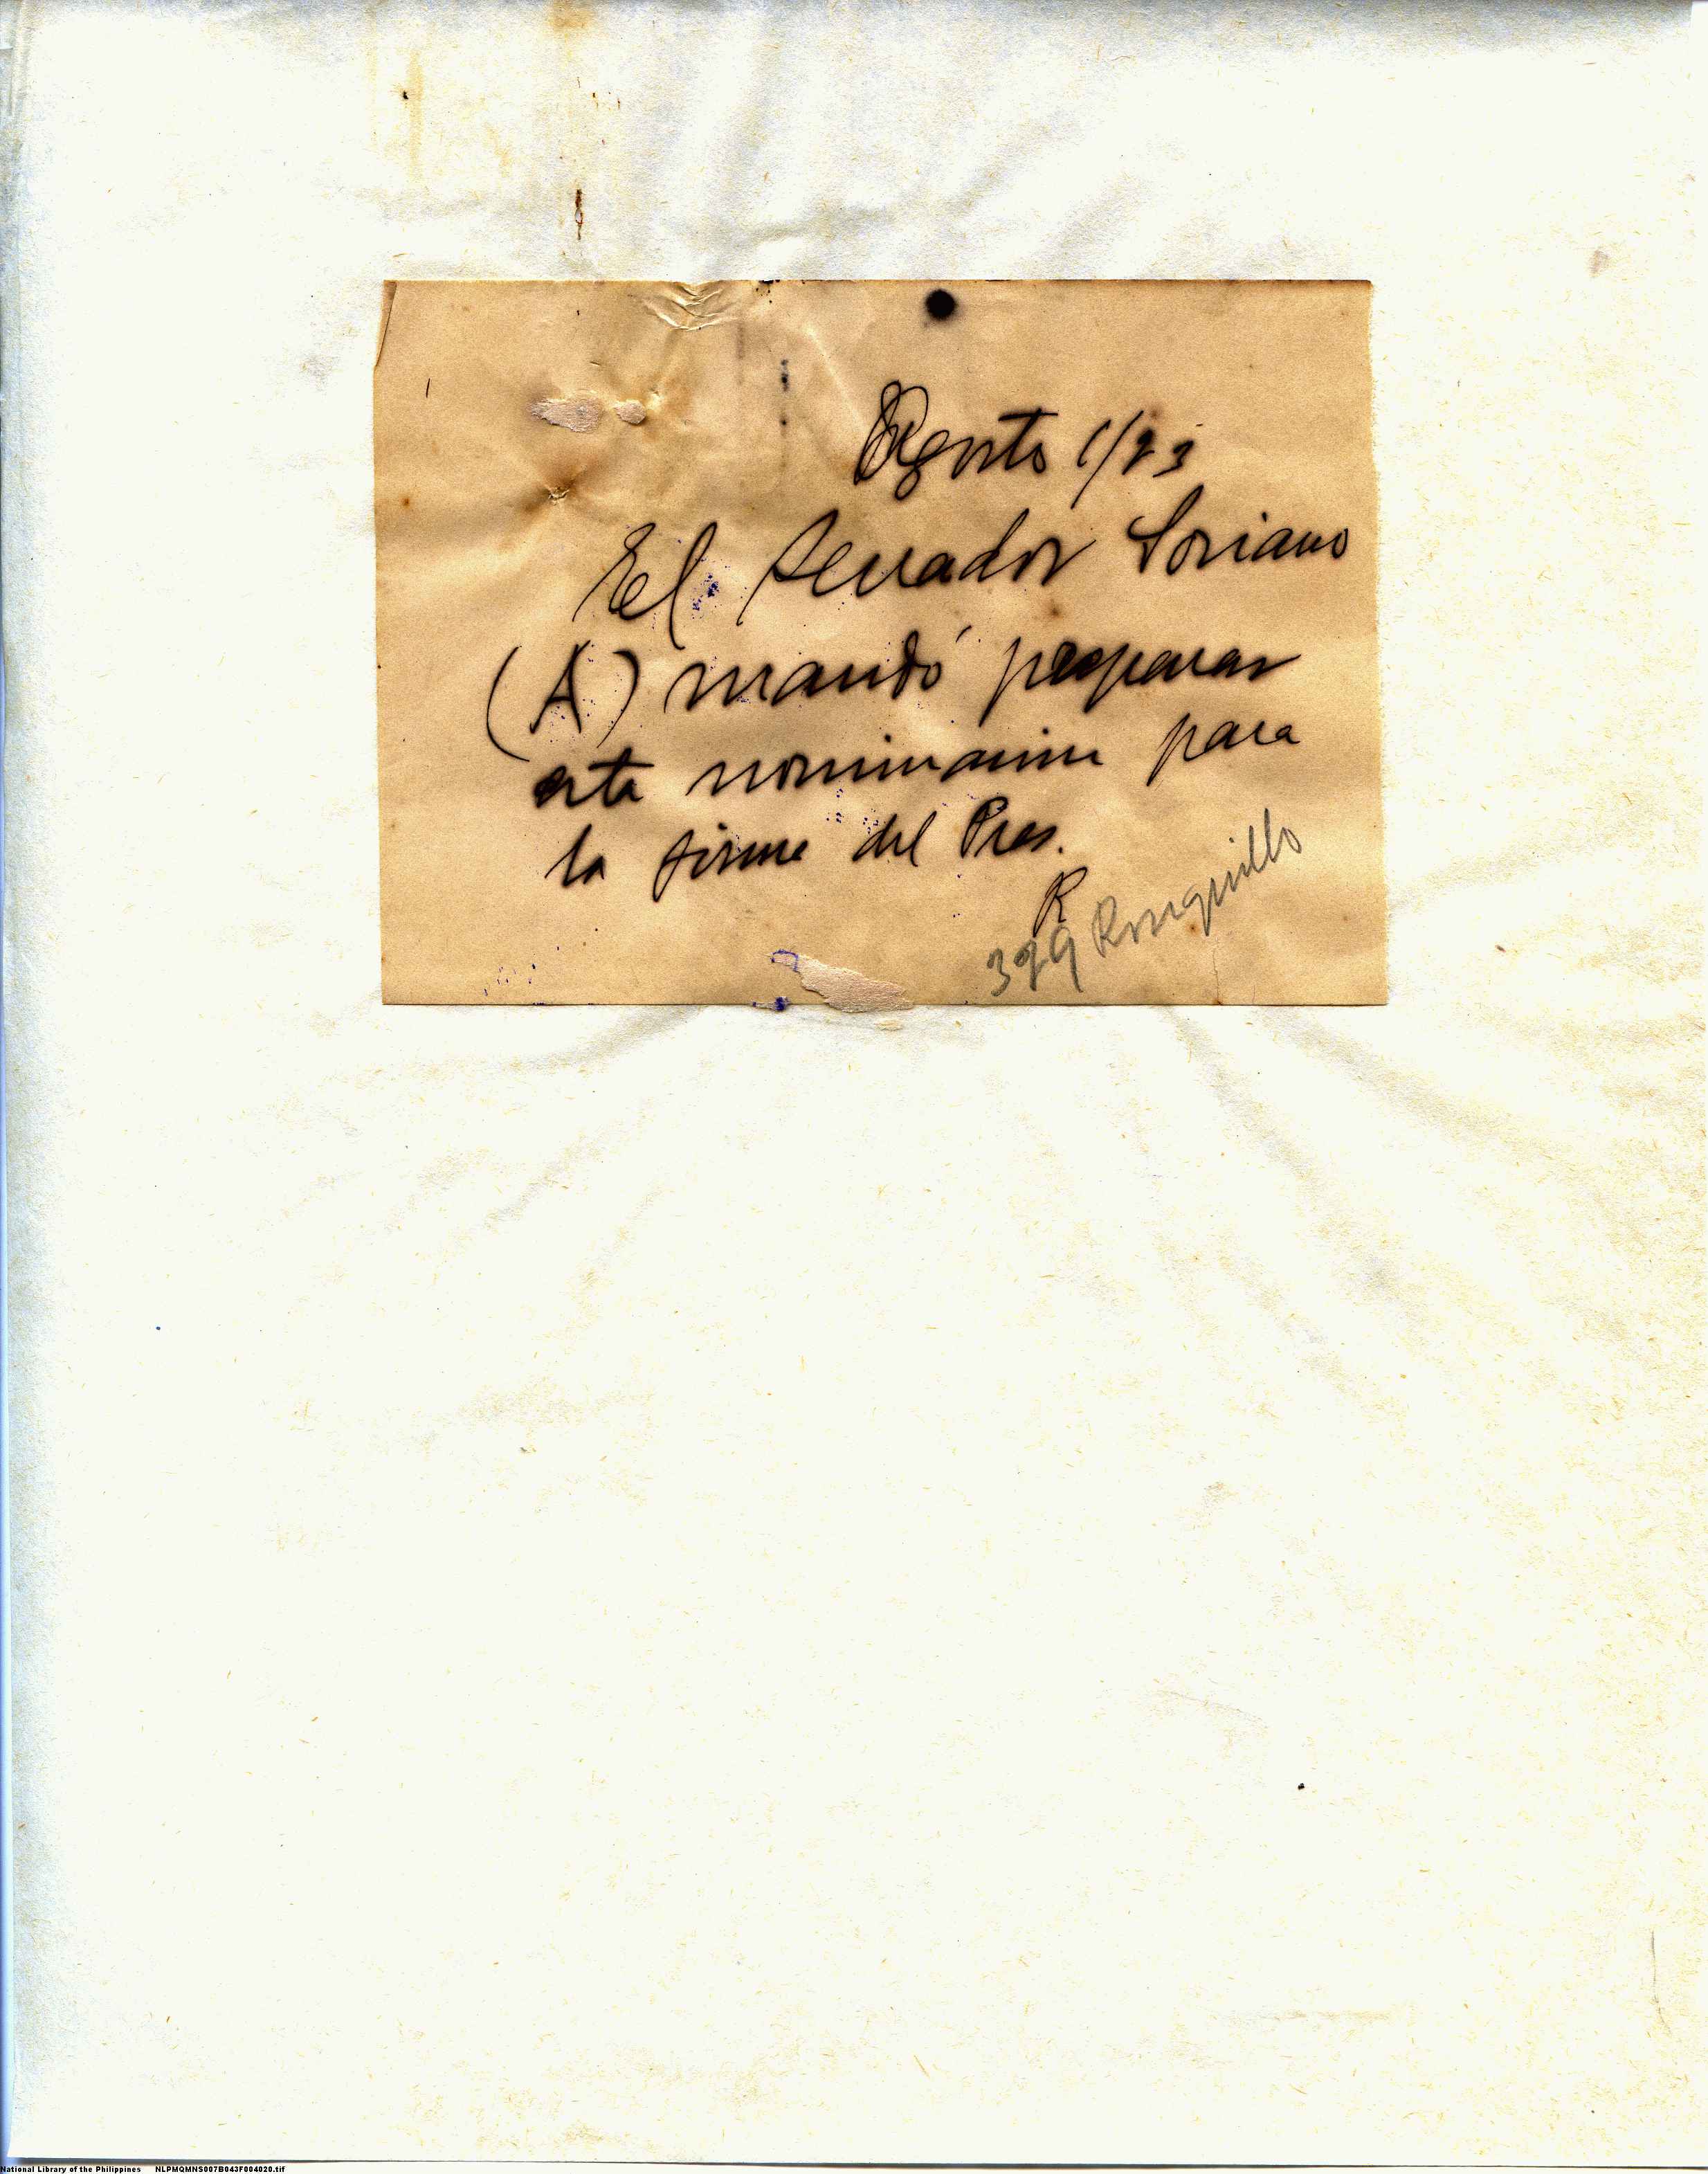 Agosto 1/23
El Senador Soriano
(A) mandó preparar
esta nominacion para
la firma del Pres.
R
329 Ronquillo
National Library of the Philippines NLPMQMNS007B043F004020.tif